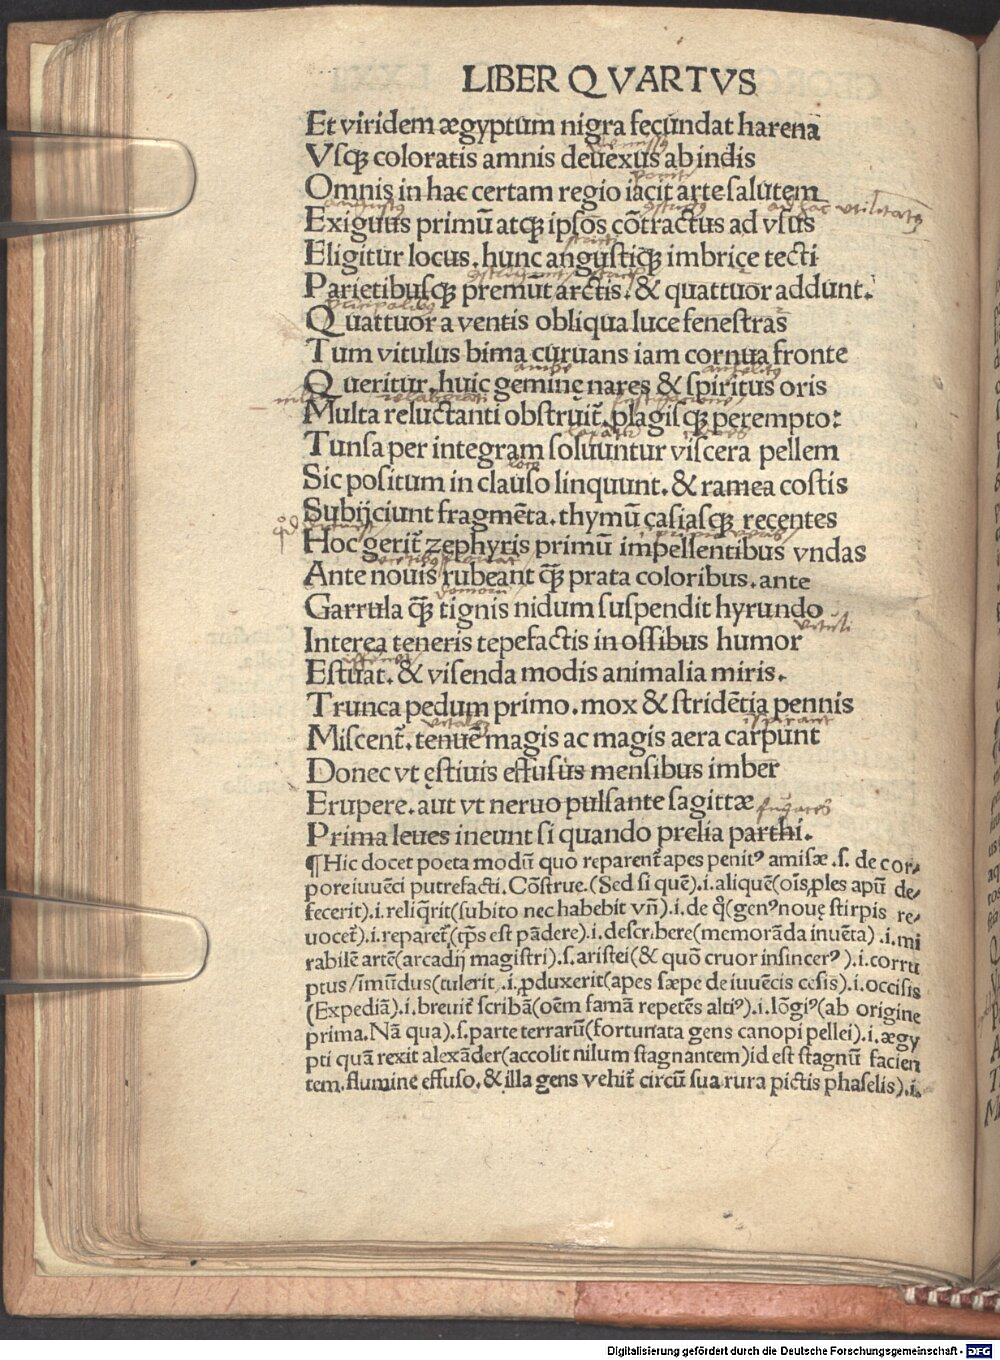 LIBER QVARTVS
Et viridem ægyptum nigra fecundat harena
Vsqꝫ coloratis amnis deuexus ab indis
Omnis in hac certam regio iacit arte salutem
Exiguus primū atqꝫ ipsos cōtractus ad vsus
Eligitur locus. hunc angustiqꝫ imbrice tecti
Parietibusqꝫ premūt arctis. & quattuor addunt.
Quattuor a ventis obliqua luce fenestras
Tum vitulus bima curuans iam cornua fronte
Queritur. huic geminę nares & spiritus oris
Multa reluctanti obstruit᷑. plagisqꝫ perempto:
Tunsa per integram soluuntur viscera pellem
Sic positum in clauso linquunt. & ramea costis
Subijciunt fragmēta. thymū casiasqꝫ recentes
Hoc gerit᷑ zephyris primū impellentibus vndas
Ante nouis rubeant qꝫ̄ prata coloribus. ante
Garrula qꝫ̄ tignis nidum suspendit hyrundo
Interea teneris tepefactis in ossibus humor
Estuat. & visenda modis animalia miris.
Trunca pedum primo. mox & stridētia pennis
Miscent᷑. tenuē magis ac magis aera carpunt
Donec vt ęstiuis effusus mensibus imber
Erupere. aut vt neruo pulsante sagittæ fugaces
Prima leues ineunt si quando prelia parthi.
¶Hic docet poeta modū quo reparent᷑ apes penitꝰ amisæ .s. de cor⸗
pore iuuēci putrefacti. Cōstrue. (Sed si quē) .i. aliquē (oīs ꝓles apū de⸗
fecerit) .i. reliq̄rit (subito nec habebit vn̄) .i. de q̊ (genꝰ nouę stirpis re⸗
uocet᷑) .i. reparet᷑ (tp̄s est pādere) .i. describere (memorāda inuēta) .i. mi
rabilē artē (arcadij magistri) .s. aristei (& quō cruor insincerꝰ) .i. corru
ptus / īmūdus (tulerit .i. ꝓduxerit (apes sæpe de iuuēcis cęsis) .i. occisis
(Expediā) .i. breuit᷑ scribā (oēm famā repetēs altiꝰ) .i. lōgiꝰ (ab origine
prima. Nā qua) .s. parte terrarū (fortunata gens canopi pellei) .i. ægy
pti quā rexit alexāder (accolit nilum stagnantem) id est stagnū facien
tem. flumine effuso. & illa gens vehit᷑ circū sua rura pictis phaselis) .i.
Digitalisierung gefördert durch die Deutsche Forschungsgemeinschaft - DFG